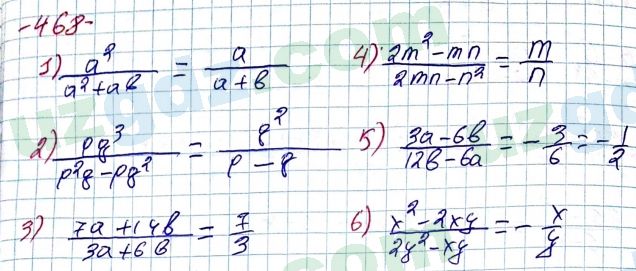 -468-
1) a²/(a²+ab) = a/(a+b)
4) (2m²-mn)/(2mn-n²) = m/n
2) pq³/(p²q-pq²) = q²/(p-q)
5) (3a-6b)/(12b-6a) = -3/6 = -1/2
3) (7a+14b)/(3a+6b) = 7/3
6) (x²-2xy)/(2y²-xy) = -x/y